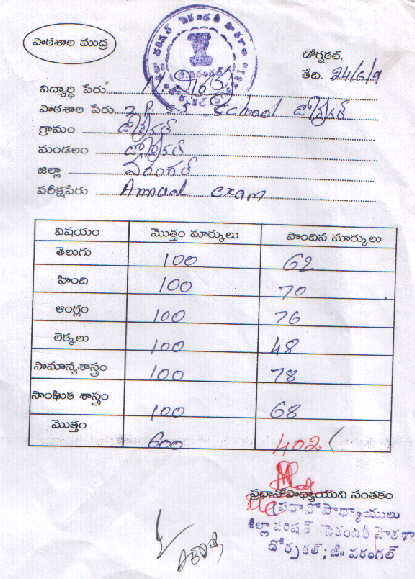 పాఠశాల ముద్ర
డోర్నకల్,
తేది. 24/6/9
విద్యార్థి పేరు
పాఠశాల పేరు School డోర్నకల్
గ్రామం డోర్నకల్
మండలం డోర్నకల్
జిల్లా వరంగల్
పరీక్షపేరు Annual exam
విషయం మొత్తం మార్కులు పొందిన మార్కులు
తెలుగు 100 62
హింది 100 70
ఆంగ్లం 100 76
లెక్కలు 100 48
సామాన్యశాస్త్రం 100 78
సాంఘిక శాస్త్రం 100 68
మొత్తం 600 402
ప్రధానోపాధ్యాయుని సంతకం
ప్రధానోపాధ్యాయులు
జిల్లా పరిషత్ సెకండరీ పాఠశాల
డోర్నకల్; జి. వరంగల్